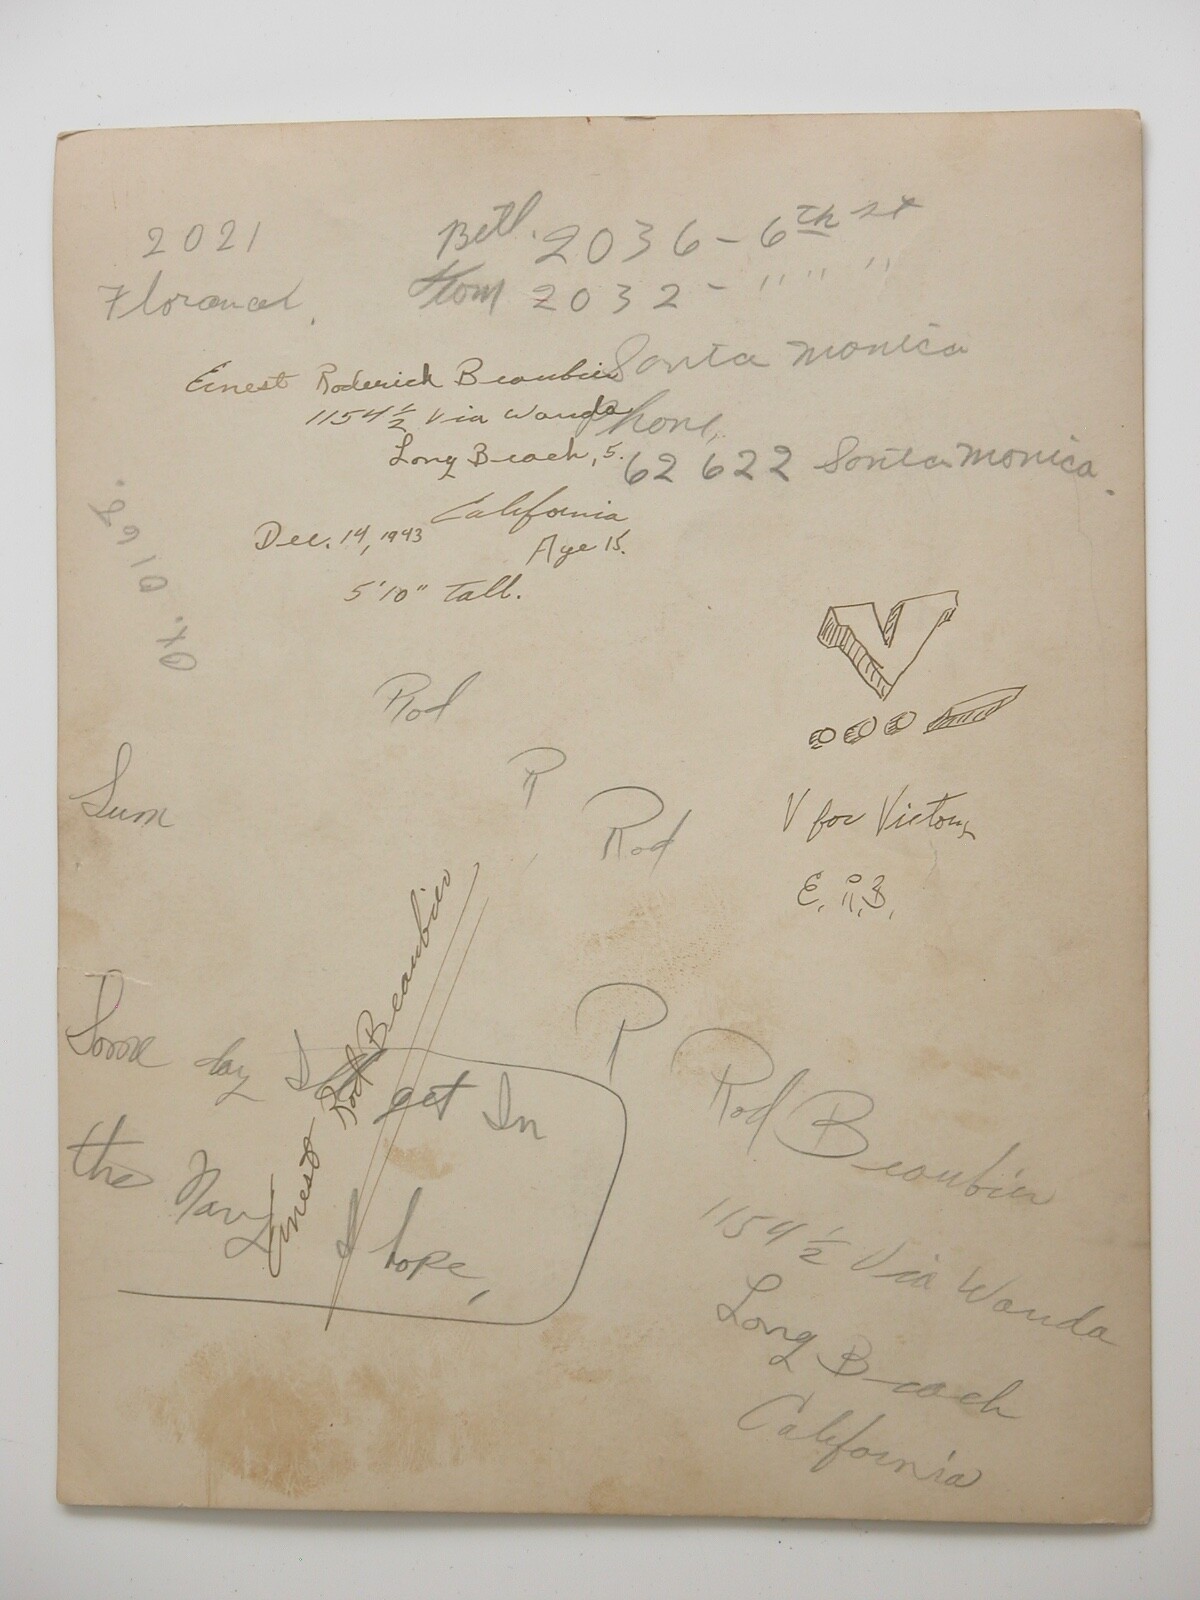 2021
Beth. 2036 - 6th st
Florance.
2032 - " " "
Santa Monica
Ernest Roderick Beaubien
1154½ Via Wanda
Phone,
Long Beach, 5.
62 622 Santa Monica.
California
Dec. 14, 1943
Age 15.
5'10" tall.
Ox. 0162.
Rod
R
Sum
Rod
V
V for Victory
E. R. B.
Ernest Rod Beaubien
Some day I get In
the Navy
I hope,
R
Rod Beaubien
1154½ Via Wanda
Long Beach
California